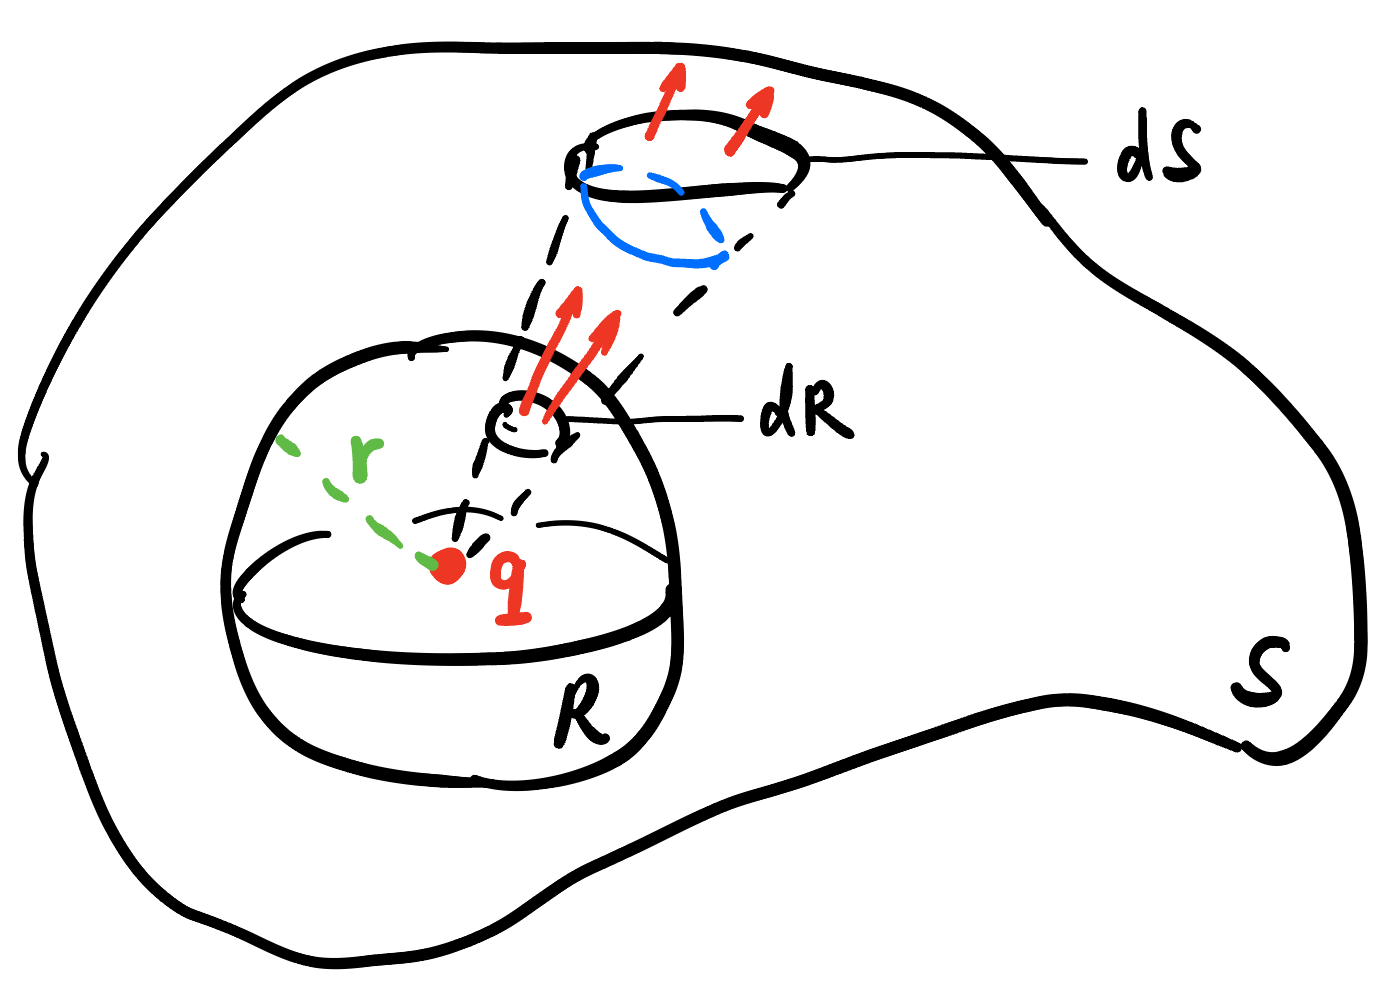 dS
dR
r
q
R
S